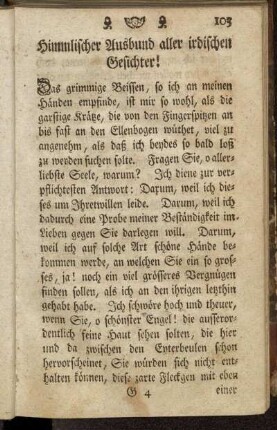 103
Himmlischer Ausbund aller irdischen
Gesichter!
Das grimmige Beissen, so ich an meinen
Händen empfinde, ist mir so wohl, als die
garstige Krätze, die von den Fingerspitzen an
bis fast an den Ellenbogen wüthet, viel zu
angenehm, als daß ich beydes so bald loß
zu werden suchen solte. Fragen Sie, o aller-
liebste Seele, warum? Ich diene zur ver-
pflichtesten Antwort: Darum, weil ich die-
ses um Ihretwillen leide. Darum, weil ich
dadurch eine Probe meiner Beständigkeit im
Lieben gegen Sie darlegen will. Darum,
weil ich auf solche Art schöne Hände be-
kommen werde, an welchen Sie ein so gros-
ses, ja! noch ein viel grösseres Vergnügen
finden sollen, als ich an den ihrigen letzthin
gehabt habe. Ich schwöre hoch und theuer,
wenn Sie, o schönster Engel! die ausseror-
dentlich feine Haut sehen solten, die hier
und da zwischen den Eyterbeulen schon
hervorscheinet, Sie würden sich nicht ent-
halten können, diese zarte Fleckgen mit eben
G 4 einer